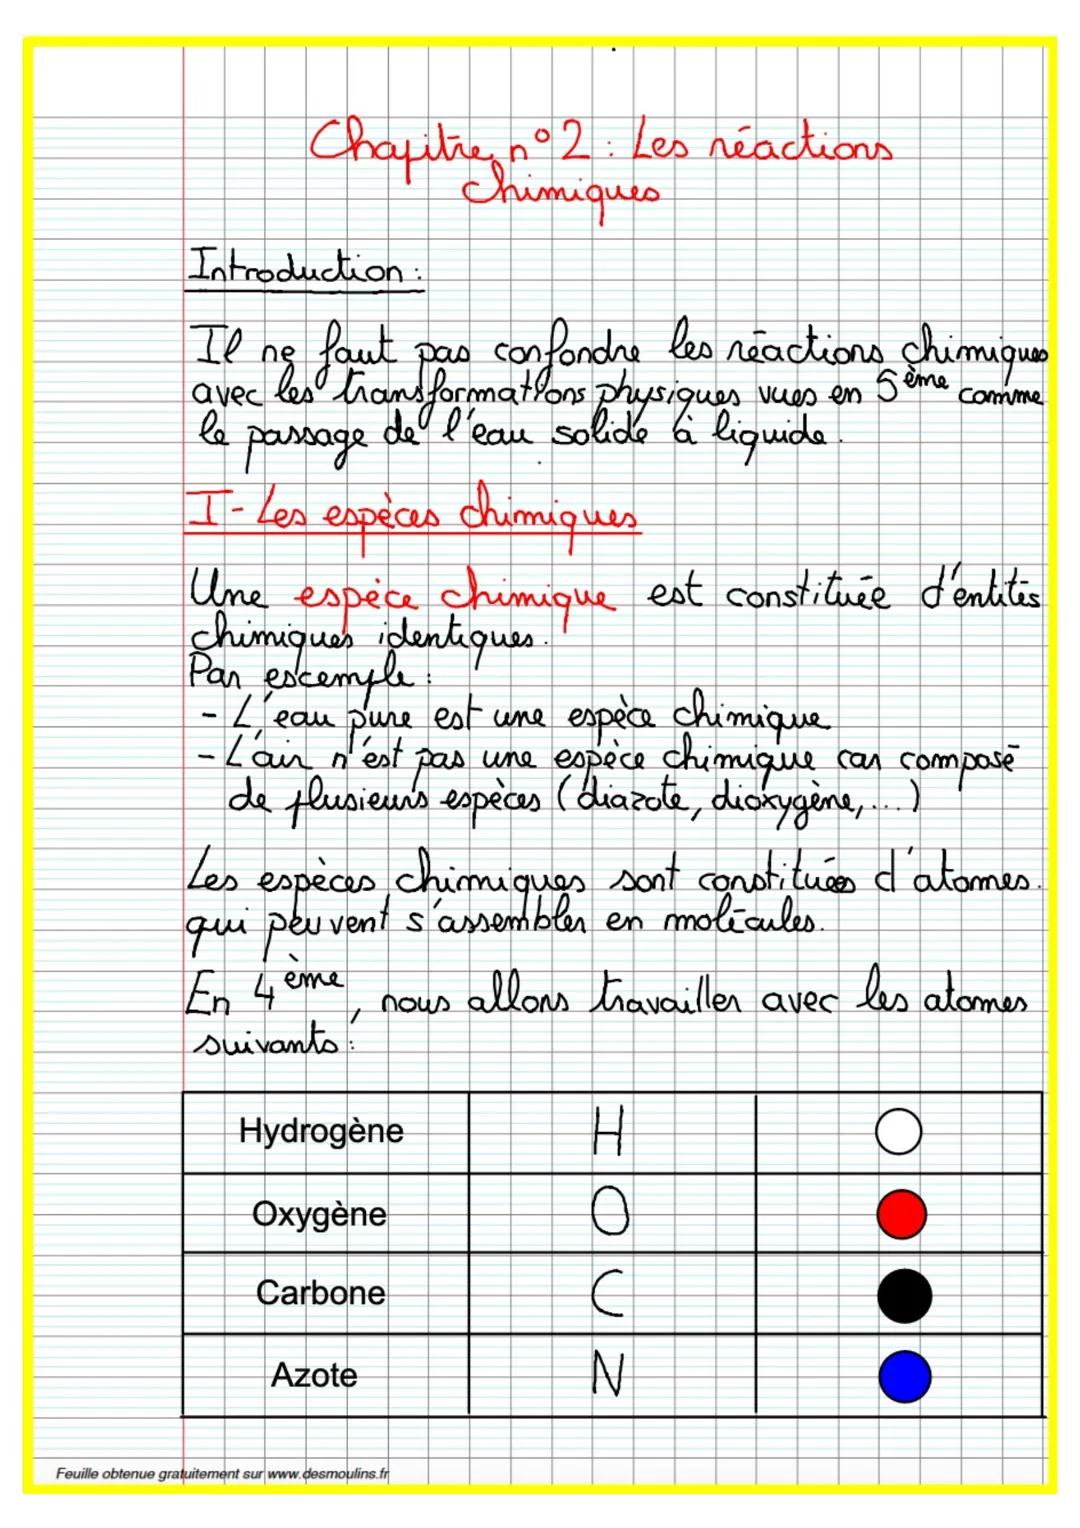 Chapitre n°2 : Les réactions
chimiques
Introduction :
Il ne faut pas confondre les réactions chimiques
avec les transformations physiques vues en 5ème comme
le passage de l'eau solide à liquide.
I- Les espèces chimiques
Une espèce chimique est constituée d'entités
chimiques identiques.
Par exemple :
- L'eau pure est une espèce chimique
- L'air n'est pas une espèce chimique car composé
de plusieurs espèces (diazote, dioxygène,...)
Les espèces chimiques sont constituées d'atomes.
qui peuvent s'assembler en molécules.
En 4ème, nous allons travailler avec les atomes
suivants :
Hydrogène H
Oxygène O
Carbone C
Azote N
Feuille obtenue gratuitement sur www.desmoulins.fr